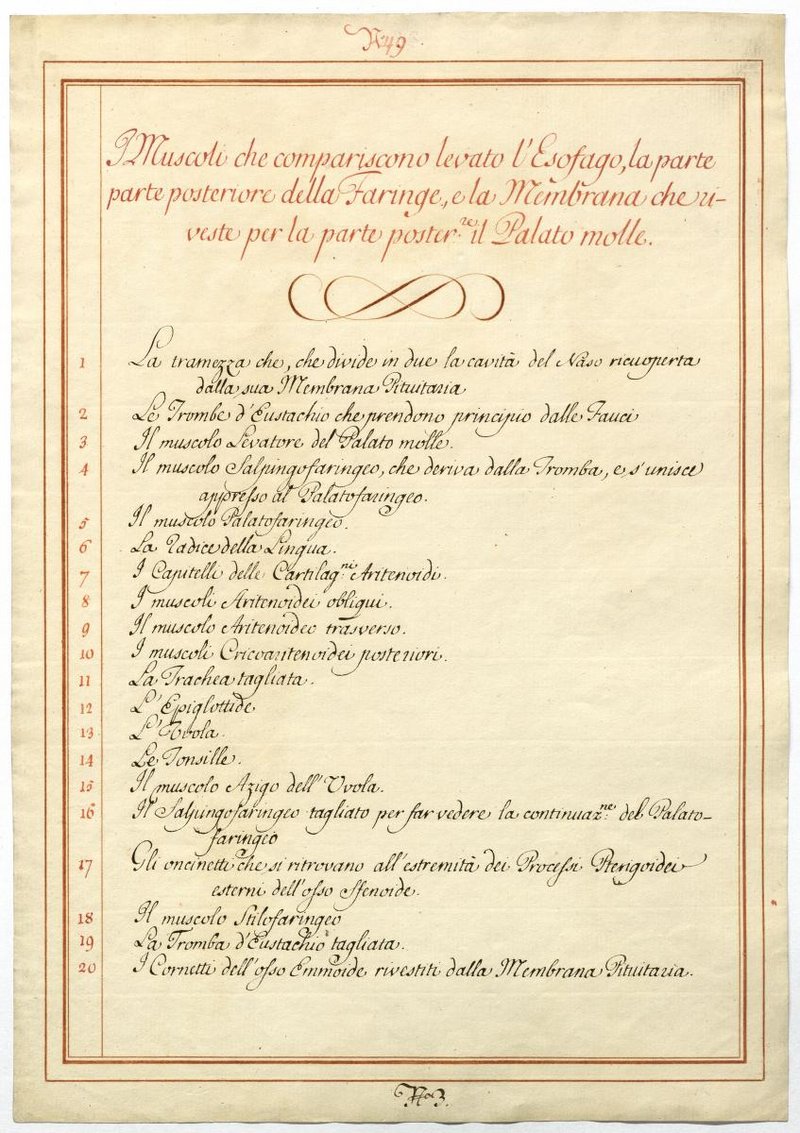 N.º 49
I Muscoli che compariscono levato l'Esofago, la parte
parte posteriore della Faringe, e la Membrana che ri-
veste per la parte poster.re il Palato molle.
1 La tramezza che, che divide in due la cavità del Naso ricuoperta
dalla sua Membrana Pituitaria
2 Le Trombe d'Eustachio che prendono principio dalle Fauci
3 Il muscolo Levatore del Palato molle.
4 Il muscolo Salpingofaringeo, che deriva dalla Tromba, e s'unisce
appresso al Palatofaringeo.
5 Il muscolo Palatofaringeo.
6 La Radice della Lingua.
7 I Capitelli delle Cartilag.ni Aritenoidi.
8 I muscoli Aritenoidei obliqui.
9 Il muscolo Aritenoideo trasverso.
10 I muscoli Cricoaritenoidei posteriori.
11 La Trachea tagliata.
12 L'Epiglottide
13 L'Uvola.
14 Le Tonsille.
15 Il muscolo Azigo dell'Uvola.
16 Il Salpingofaringeo tagliato per far vedere la continuaz.ne del Palato-
faringeo
17 Gli oncinetti che si ritrovano all'estremità dei Processi Pterigoidei
esterni dell'osso Sfenoide.
18 Il muscolo Stilofaringeo
19 La Tromba d'Eustachio tagliata.
20 I Cornetti dell'osso Emmoide rivestiti dalla Membrana Pituitaria.